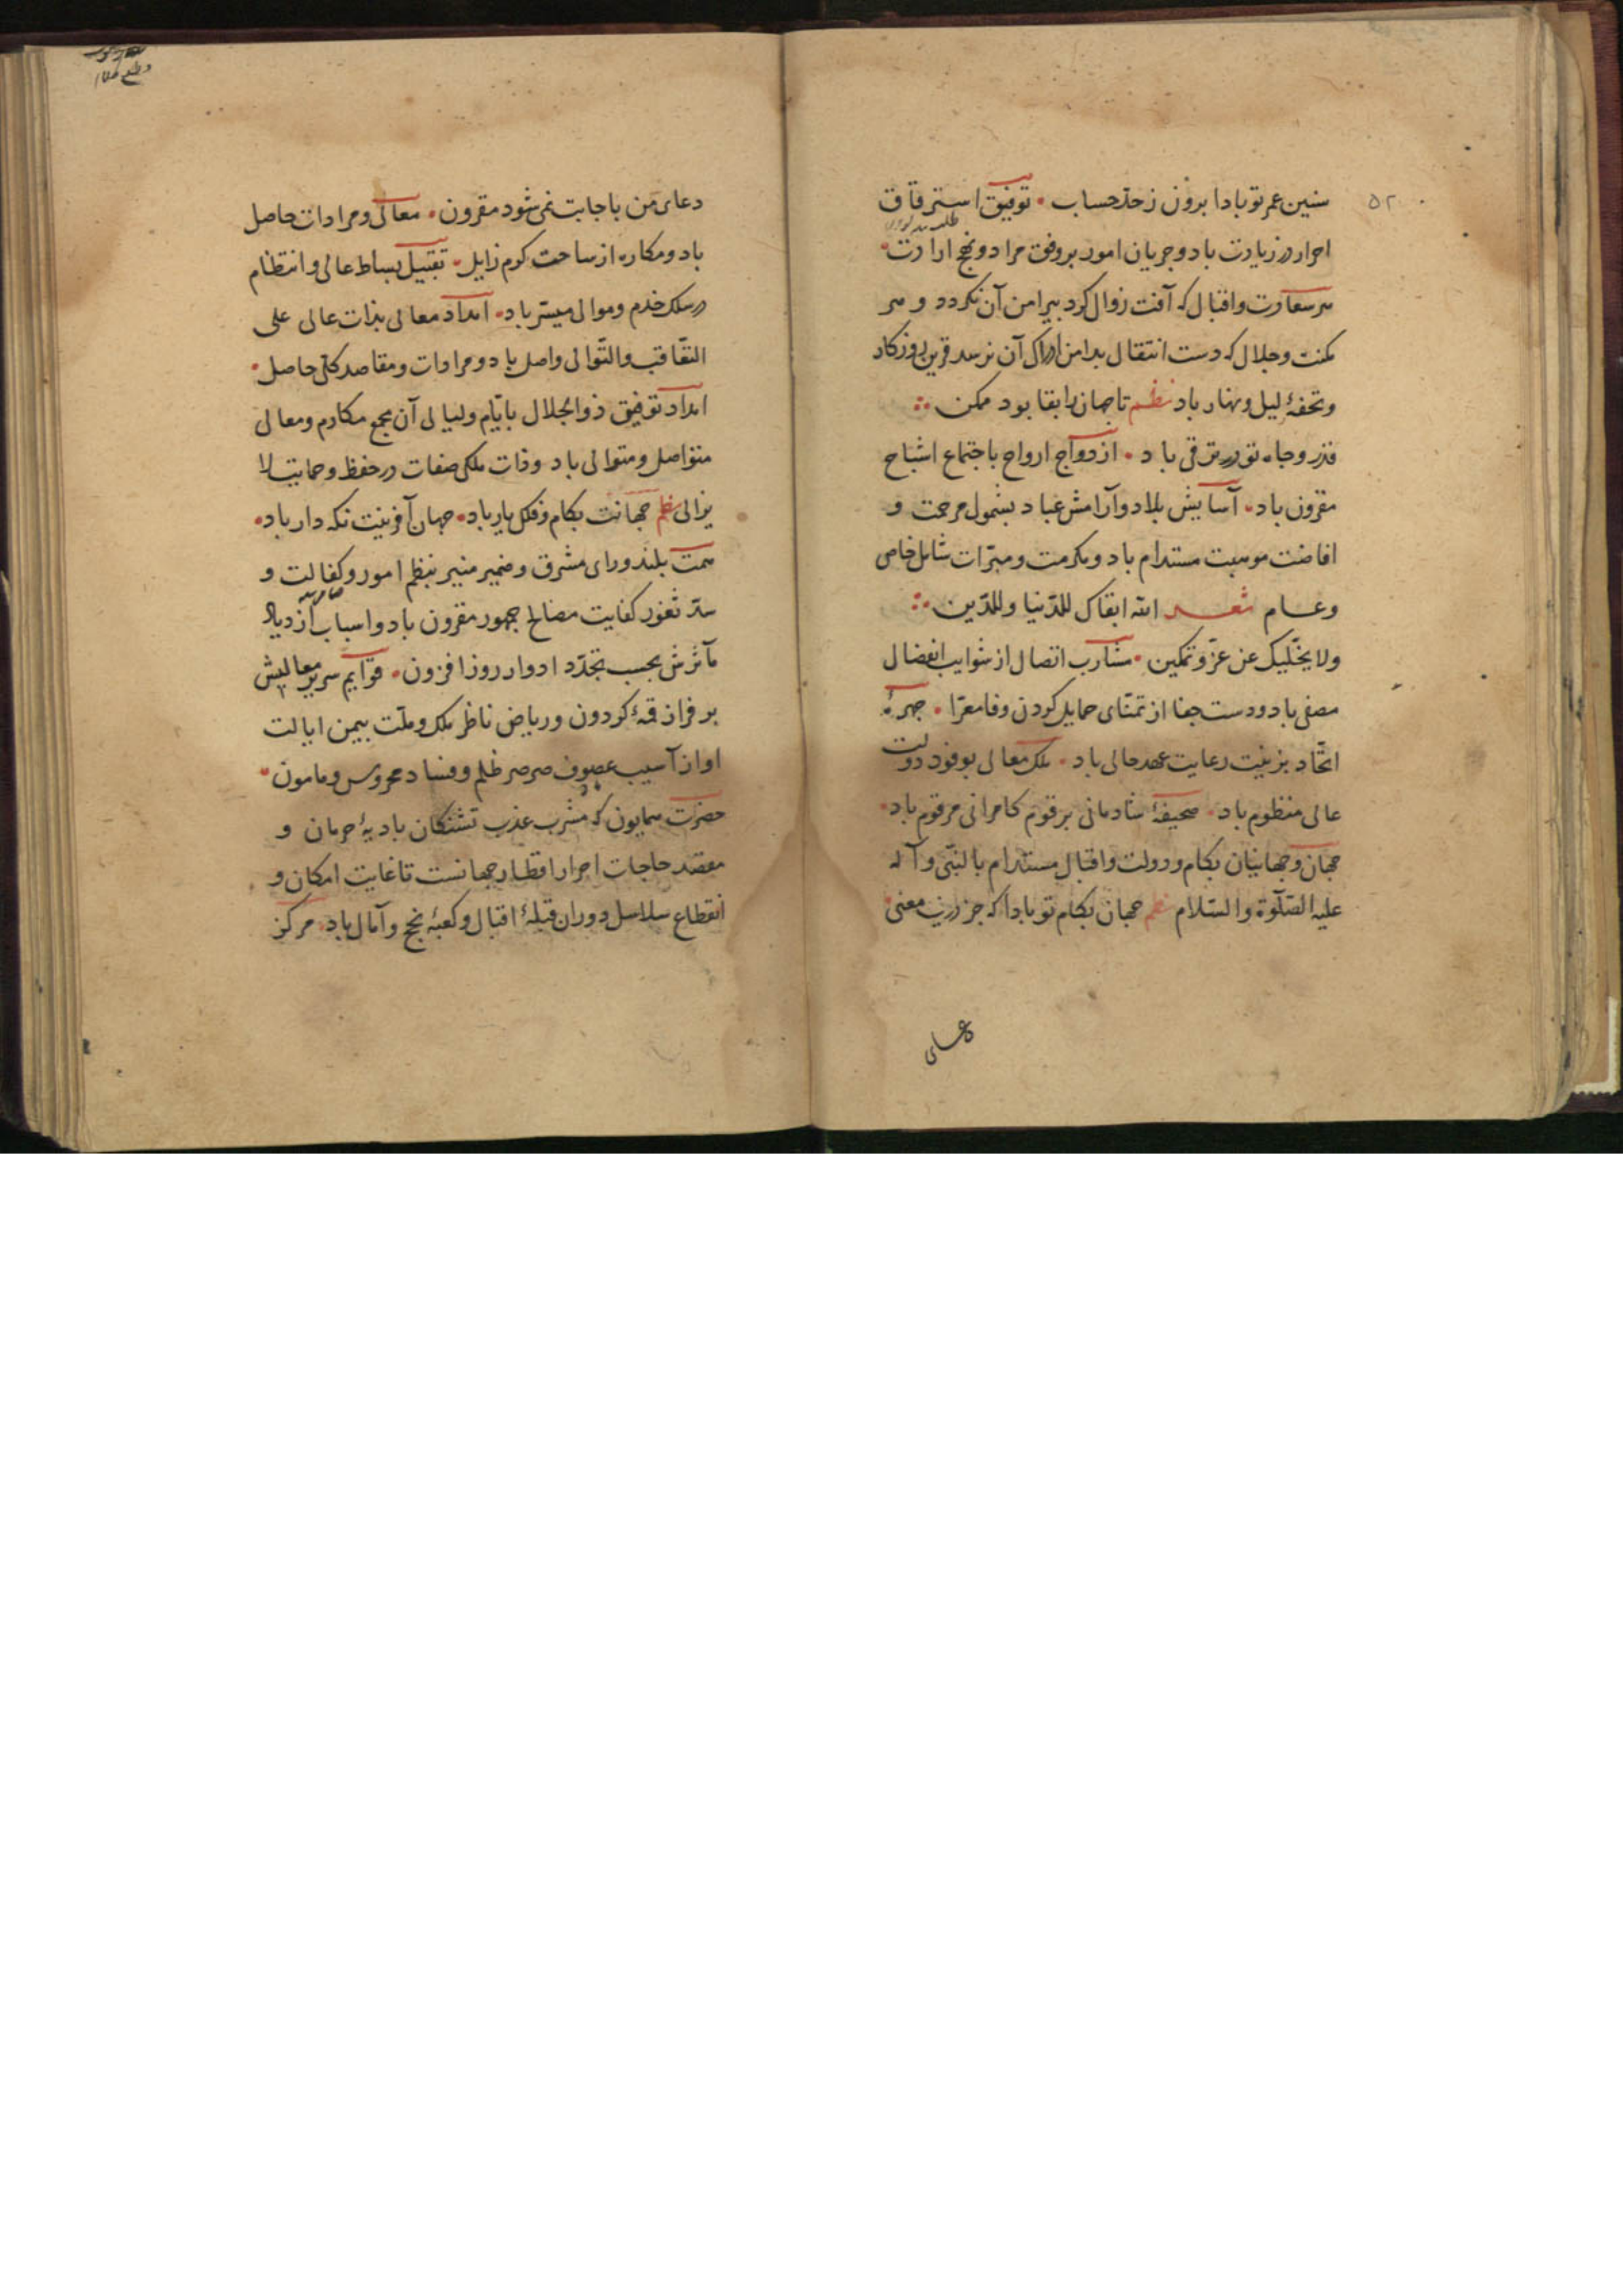 ۵۲
سنین عمر تو بادا برون ز حد حساب • توفیق استرقاق
احرار در زیادت باد و جریان امور بر وفق مراد و نهج ارادت •
هر سعادت و اقبال که آفت زوال کرد پیرامن آن نکردد و هر
مکنت و جلال که دست انتقال بدامن ادراک آن نرسد قرین روزکار
و تحفهٔ لیل و نهار باد نظم تا جهان را بقا بود ممکن
قدر و جاه تو در ترقی باد • ازدواج ارواح باجتماع اشباح
مقرون باد • آسایش بلاد و آرامش عباد بشمول مرحمت و
افاضت موهبت مستدام باد و مکرمت و مبرّات شامل خاص
و عام شعر الله ابقاک للدّنیا وللدّین
ولا یخلّیک عن عزّ و تمکین • مشارب اتصال از شوایب انفصال
مصفی باد و دست جفا از تمنّای حمایل کردن وفا معرّا • چهرهٔ
اتّحاد بزینت رعایت عهد حالی باد • ملک معالی بوفود دولت
عالی منظوم باد • صحیفهٔ شادمانی برقوم کامرانی مرقوم باد •
جهان و جهانیان بکام و دولت و اقبال مستدام بالنّبی و آله
علیه الصّلوة والسّلام نظم جهان بکام تو بادا که جز درین معنی
دعای
دعای من باجابت نمی شود مقرون • معالی و مرادات حاصل
باد و مکاره از ساحت کرم زایل • تقبیل بساط عالی و انتظام
در سلک خدم و موالی میسّر باد • امداد معالی بذات عالی علی
التعاقب والتّوالی واصل باد و مرادات و مقاصد کلّی حاصل •
امداد توفیق ذوالجلال بایّام و لیالی آن مجمع مکارم و معالی
متواصل و متوالی باد و ذات ملکی صفات در حفظ و حمایت لا
یزالی نظم جهانت بکام و فلک یار باد • جهان آفرینت نکه دار باد •
همت بلند و رای مشرق و ضمیر منیر بنظم امور و کفالت و
سدّ ثغور کفایت مصالح جمهور مقرون باد و اسباب ازدیاد
مآثرش بحسب تجدّد ادوار روز افزون • قوایم سریر معالیش
بر فراز قمهٔ کردون و ریاض ناظر ملک و ملّت بیمن ایالت
او از آسیب عصوف صرصر ظلم و فساد محروس و مامون •
حضرت همایون که مشرب عذب تشنکان بادیهٔ حرمان و
مقصد حاجات احرار اقطار جهانست تا غایت امکان و
انقطاع سلاسل دوران قبلهٔ اقبال و کعبهٔ نجح و آمال باد • مرکز